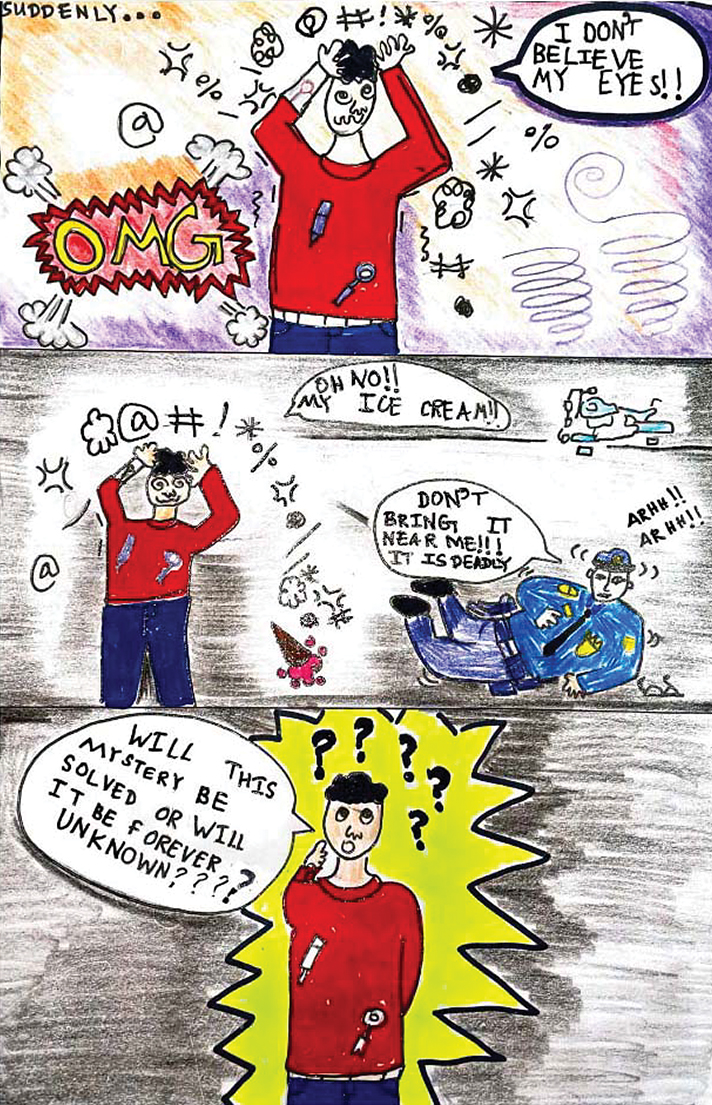 SUDDENLY...
@ ##!*%
I DON'T
BELIEVE
MY EYES!!
%
@
%
*
OMG
##
OH NO!!
MY ICE CREAM!!
@ #!
*
%
DON'T
BRING IT
NEAR ME!!!
IT IS DEADLY
ARHH!!
ARHH!!
@
*
#
WILL THIS
MYSTERY BE
SOLVED OR WILL
IT BE FOREVER
UNKNOWN????
? ? ? ? ?